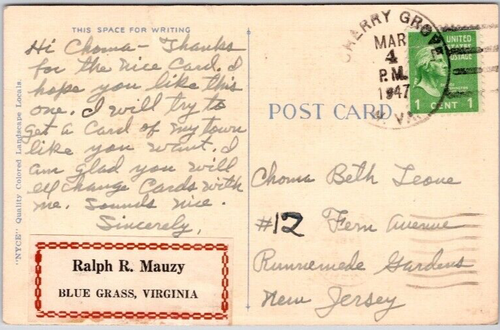 THIS SPACE FOR WRITING
Hi Choma – Thanks
for the nice Card. I
hope you like this
one. I will try to
get a Card of my town
like you want. I
am glad you will
exchange Cards with
me. Sounds nice.
Sincerely,
Ralph R. Mauzy
BLUE GRASS, VIRGINIA
"NYCE" Quality Colored Landscape Locals.
CHERRY GROVE
MAR
4
P.M.
1947
W. VA.
UNITED
STATES
POSTAGE
1 CENT 1
POST CARD
Choma Beth Leone
#12 Fern Avenue
Runnemede Gardens
New Jersey